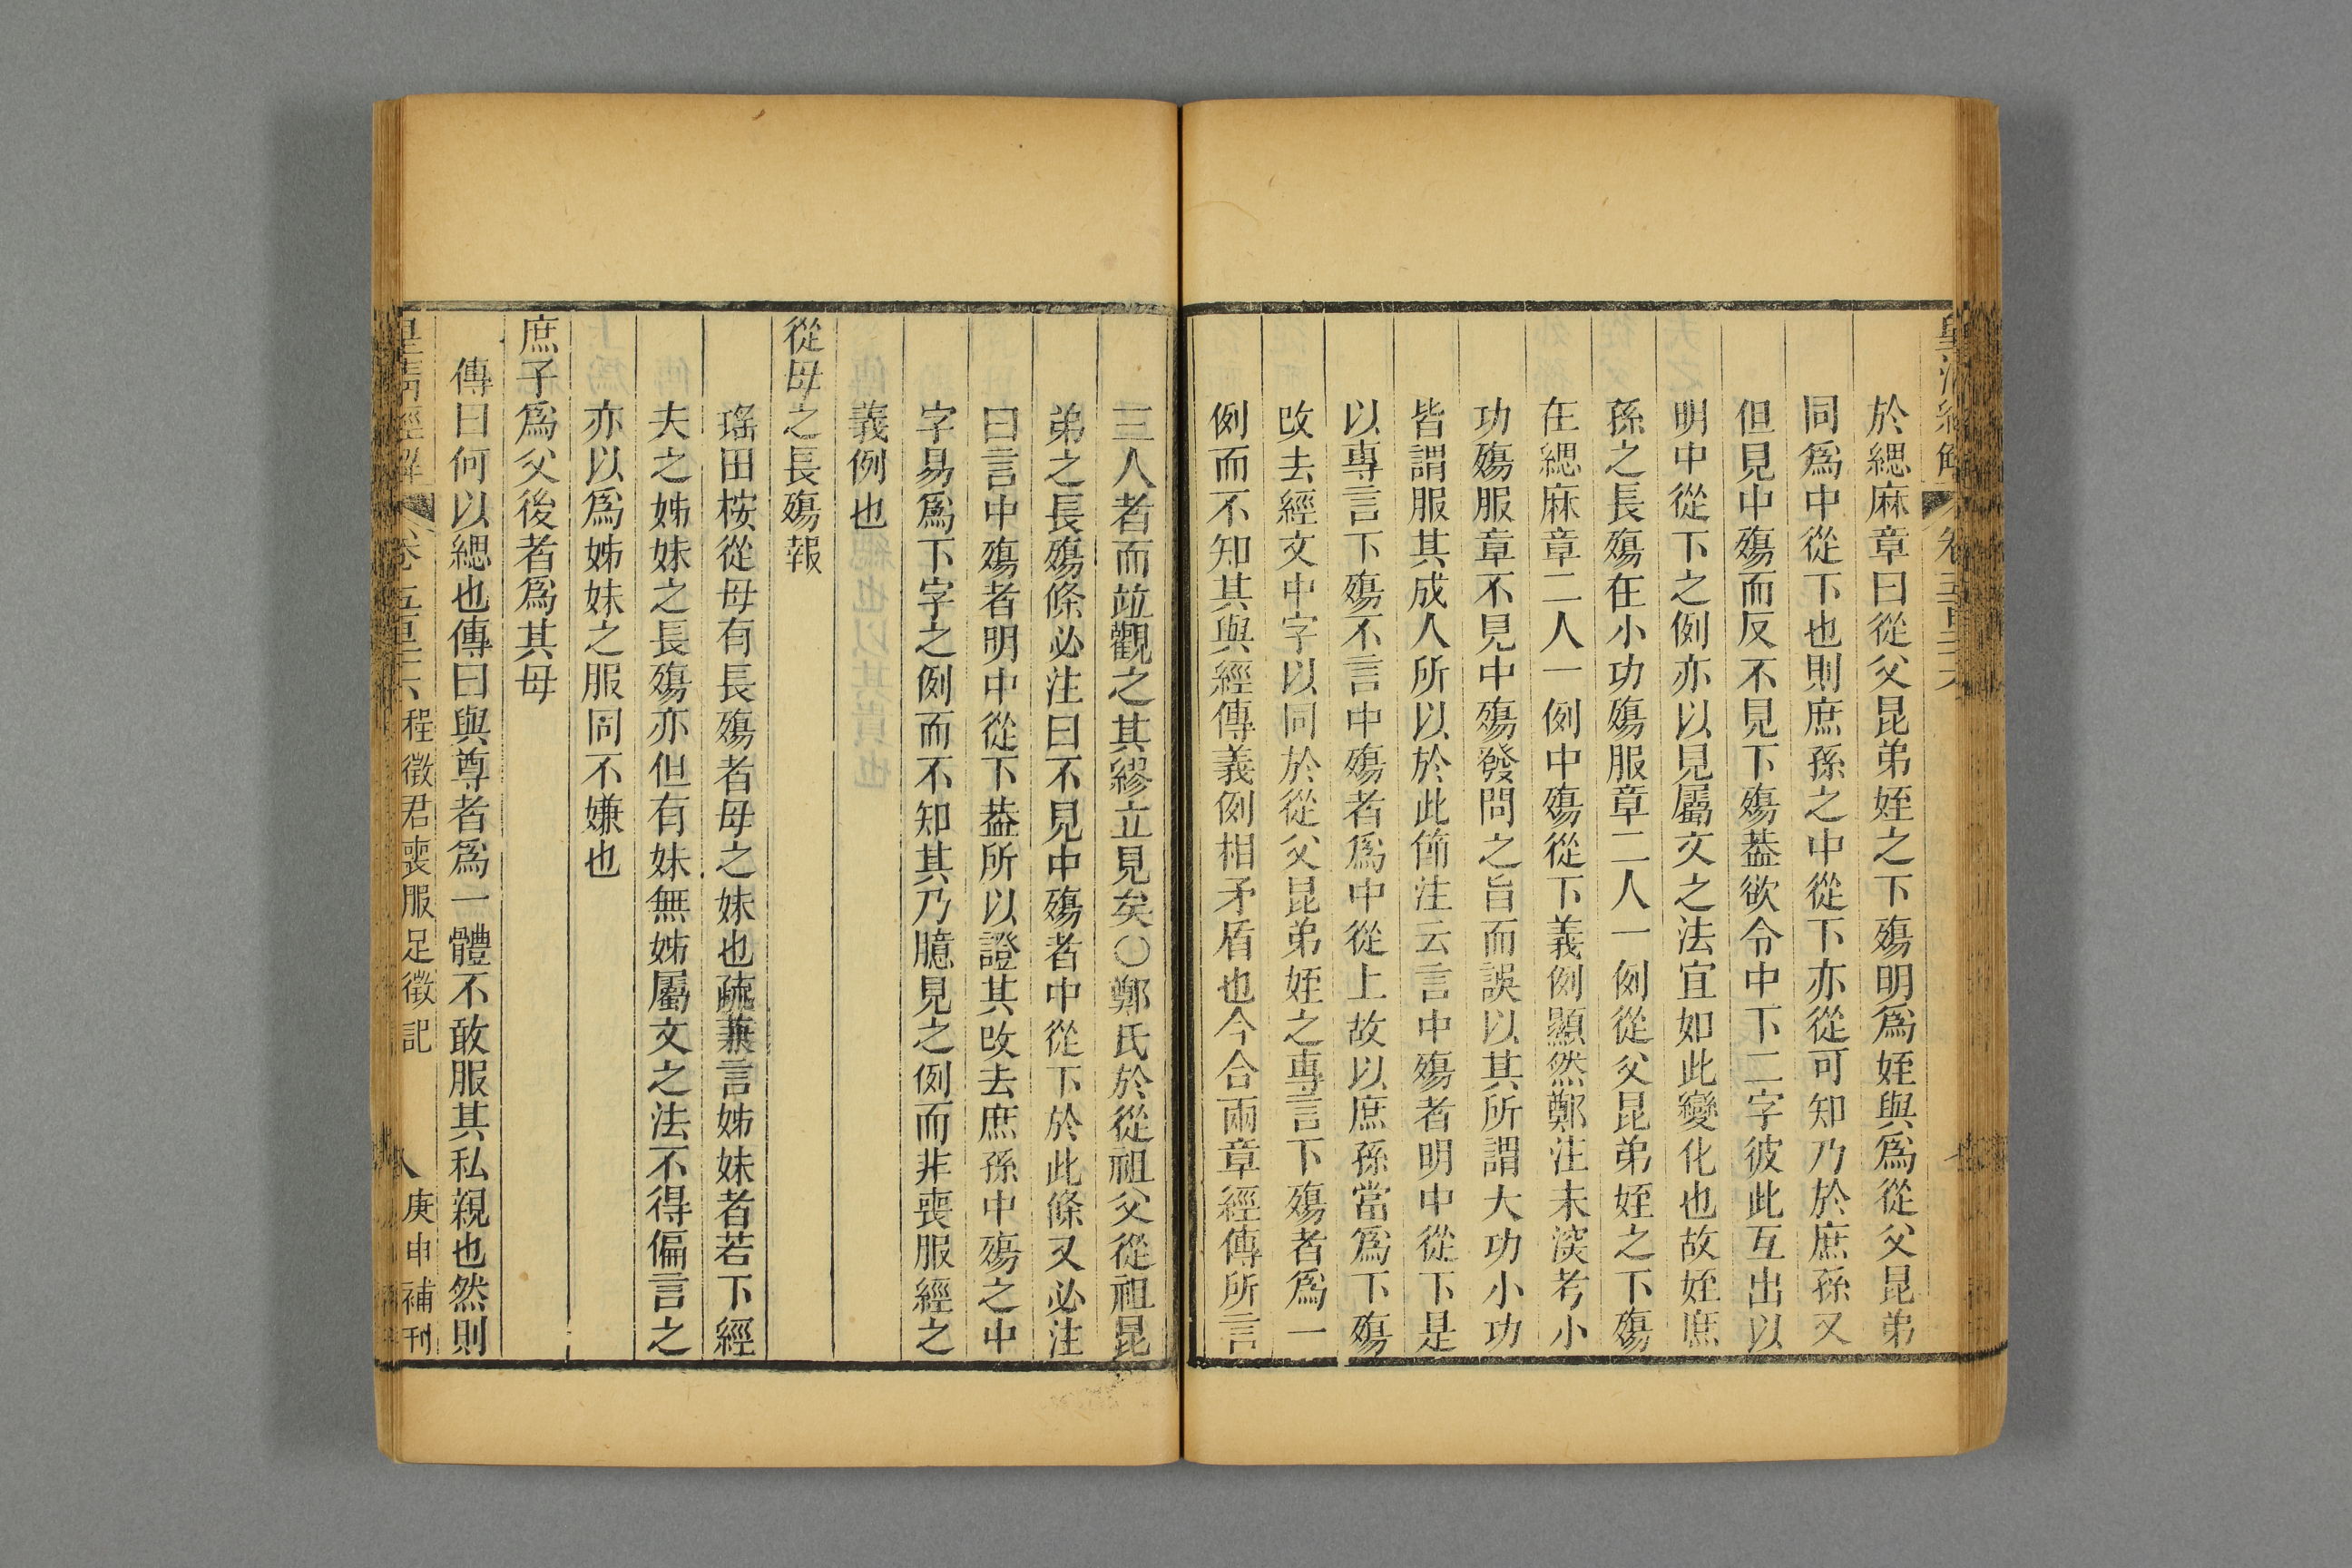 於緦麻章曰從父昆弟姪之下殤明爲姪與爲從父昆弟
同爲中從下也則庶孫之中從下亦從可知乃於庶孫又
但見中殤而反不見下殤葢欲令中下二字彼此互出以
明中從下之例亦以見屬文之法宜如此變化也故姪庶
孫之長殤在小功殤服章二人一例從父昆弟姪之下殤
在緦麻章二人一例中殤從下義例顯然鄭注未深考小
功殤服章不見中殤發問之旨而誤以其所謂大功小功
皆謂服其成人所以於此節注云言中殤者明中從下是
以專言下殤不言中殤者爲中從上故以庶孫當爲下殤
改去經文中字以同於從父昆弟姪之專言下殤者爲一
例而不知其與經傳義例相矛盾也今合兩章經傳所言
三人者而竝觀之其繆立見矣○鄭氏於從祖父從祖昆
弟之長殤條必注曰不見中殤者中從下於此條又必注
曰言中殤者明中從下葢所以證其改去庶孫中殤之中
字易爲下字之例而不知其乃臆見之例而非喪服經之
義例也
從母之長殤報
瑤田桉從母有長殤者母之妹也疏兼言姊妹者若下經
夫之姊妹之長殤亦但有妹無姊屬文之法不得偏言之
亦以爲姊妹之服同不嫌也
庶子爲父後者爲其母
傳曰何以緦也傳曰與尊者爲一體不敢服其私親也然則
皇清經解 卷五百三六 程徵君喪服足徵記 八 庚申補刊